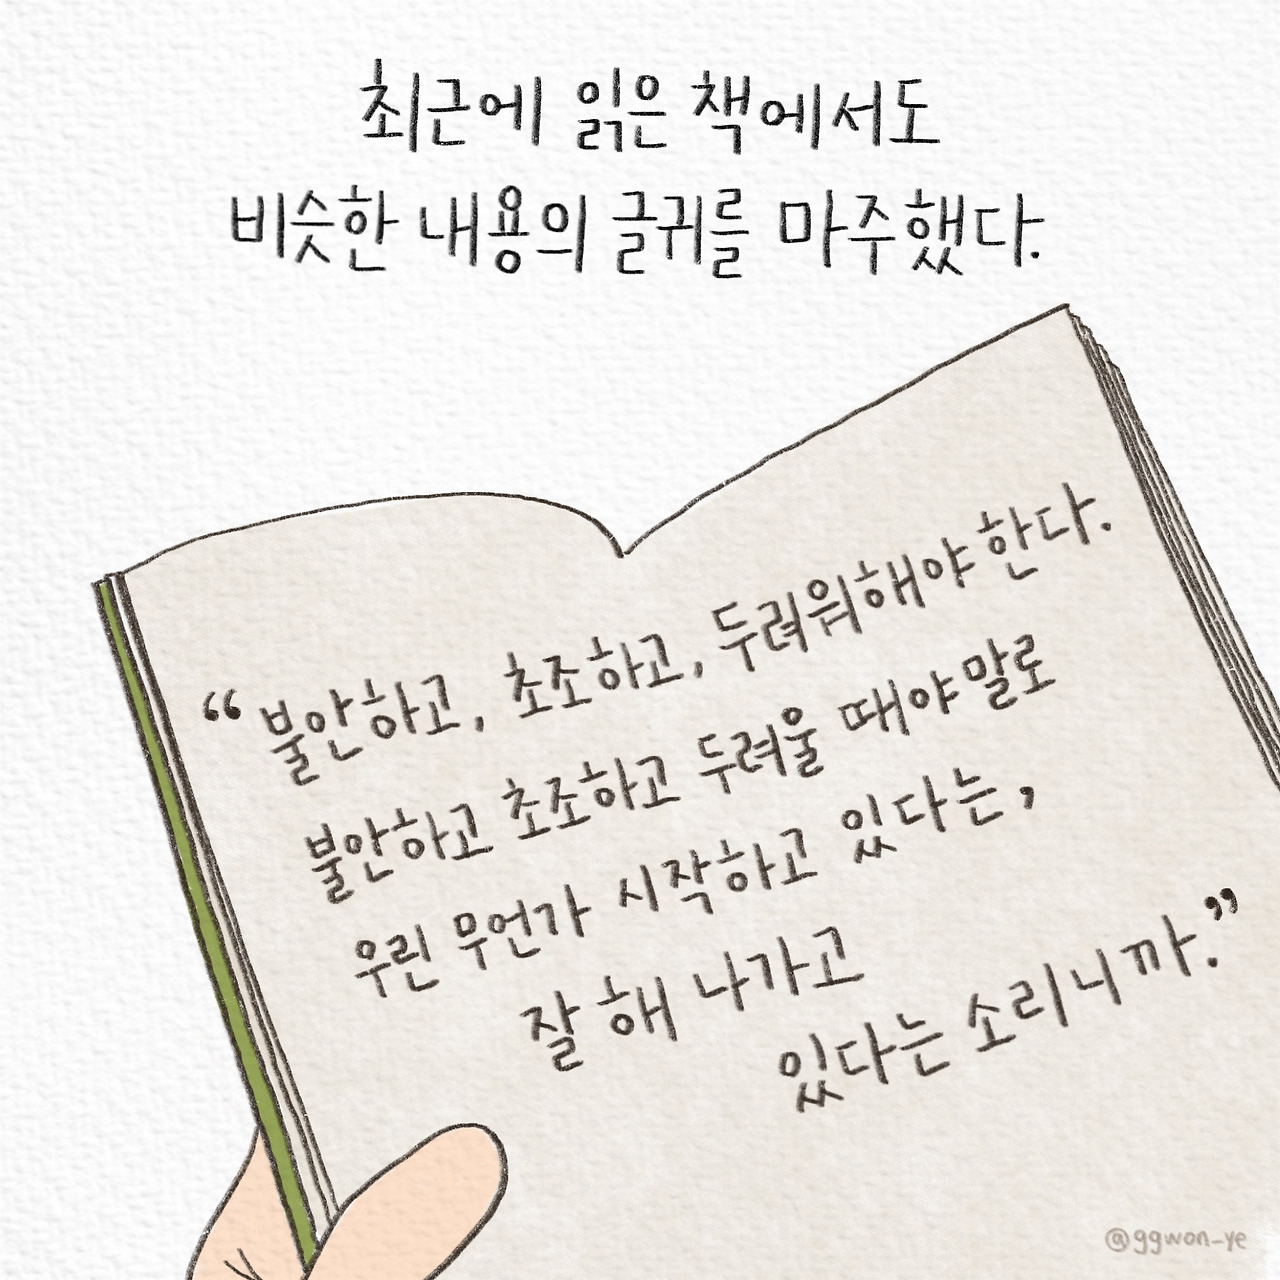 최근에 읽은 책에서도
비슷한 내용의 글귀를 마주했다.
“불안하고, 초조하고, 두려워해야 한다.
불안하고 초조하고 두려울 때야말로
우린 무언가 시작하고 있다는,
잘 해 나가고
있다는 소리니까.”
@ggwon-ye